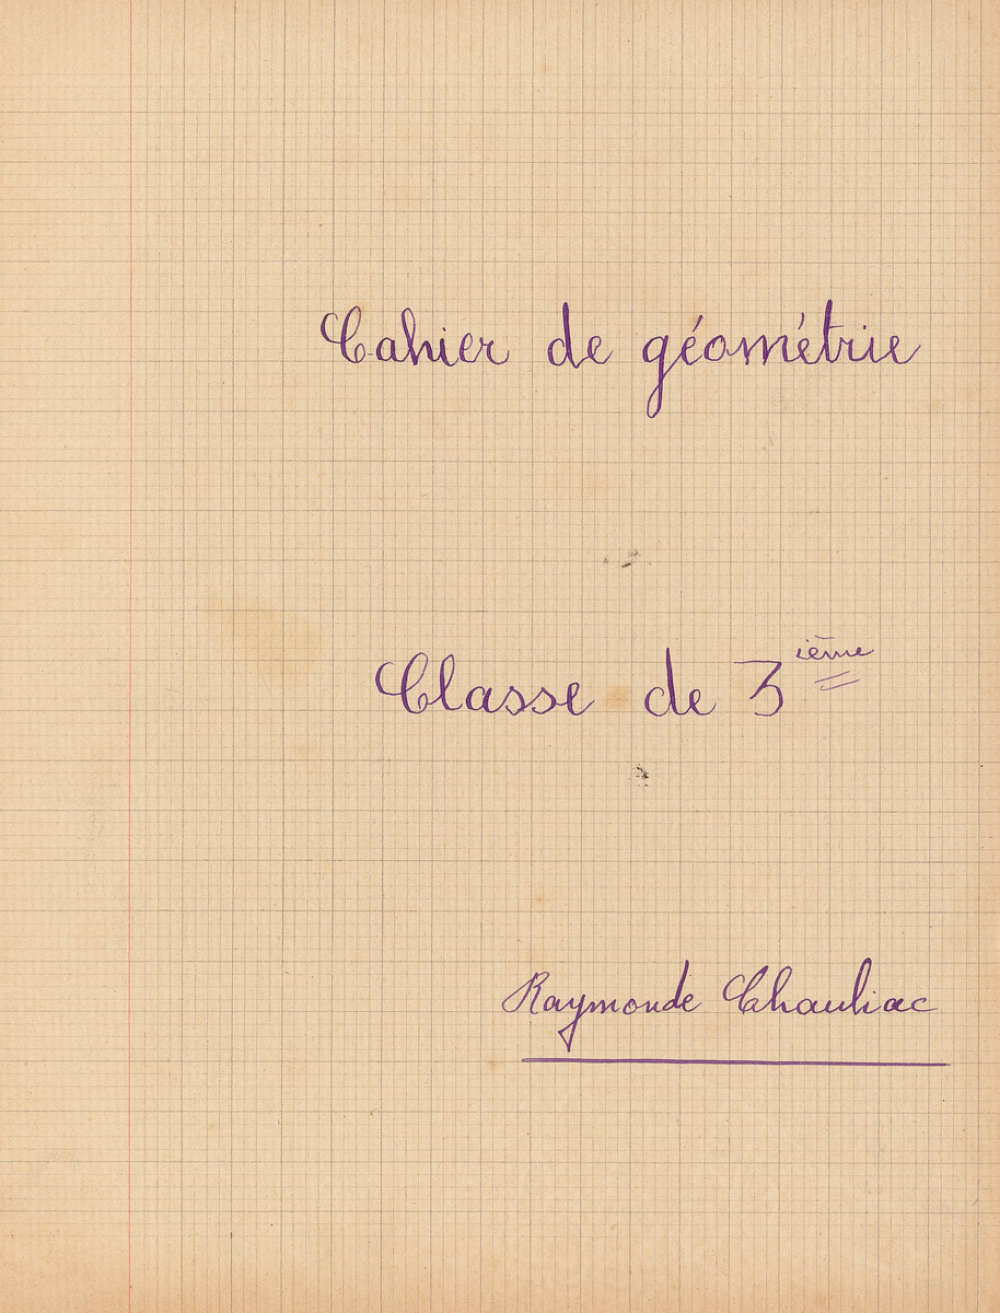 Cahier de géométrie
Classe de 3ième
Raymonde Chauliac